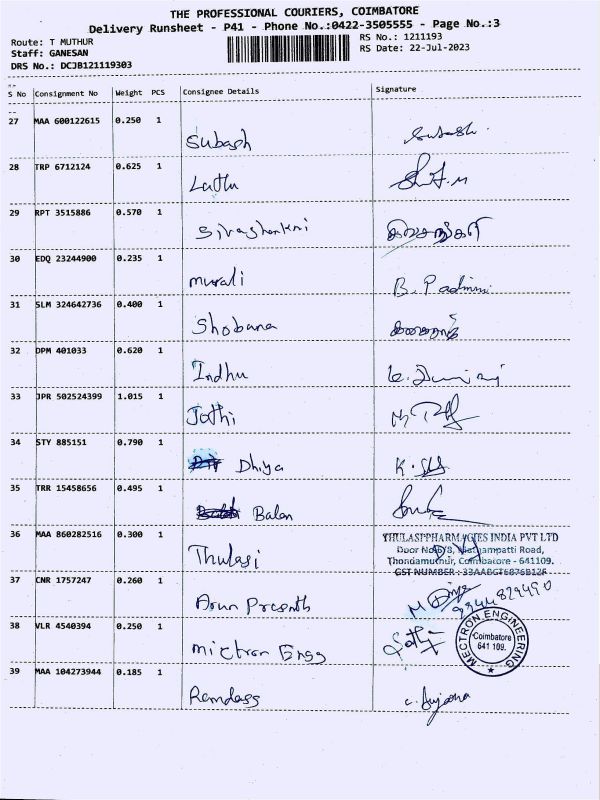 THE PROFESSIONAL COURIERS, COIMBATORE
Delivery Runsheet - P41 - Phone No.:0422-3505555 - Page No.:3
Route: T MUTHUR
Staff: GANESAN
DRS No.: DCJB121119303
RS No.: 1211193
RS Date: 22-Jul-2023
S No Consignment No Weight PCS Consignee Details Signature
27 MAA 600122615 0.250 1 Subash Subash
28 TRP 6712124 0.625 1 Lathu
29 RPT 3515886 0.570 1
30 EDQ 23244900 0.235 1 murali B. Padmini
31 SLM 324642736 0.400 1 Shobana
32 DPM 401033 0.620 1 Indhu
33 JPR 502524399 1.015 1 Jothi
34 STY 885151 0.790 1 Dhiya
35 TRR 15458656 0.495 1 Balan
36 MAA 860282516 0.300 1 Thulasi
THULASI PHARMACIES INDIA PVT LTD
Door No. Road,
Thondamuthur, Coimbatore - 641109.
GST NUMBER :
37 CNR 1757247 0.260 1 Arun Prasanth
38 VLR 4540394 0.250 1 mictron Engg
MECTRON ENGINEERING
Coimbatore
641 109.
39 MAA 104273944 0.185 1 Ramdass c. Sujana